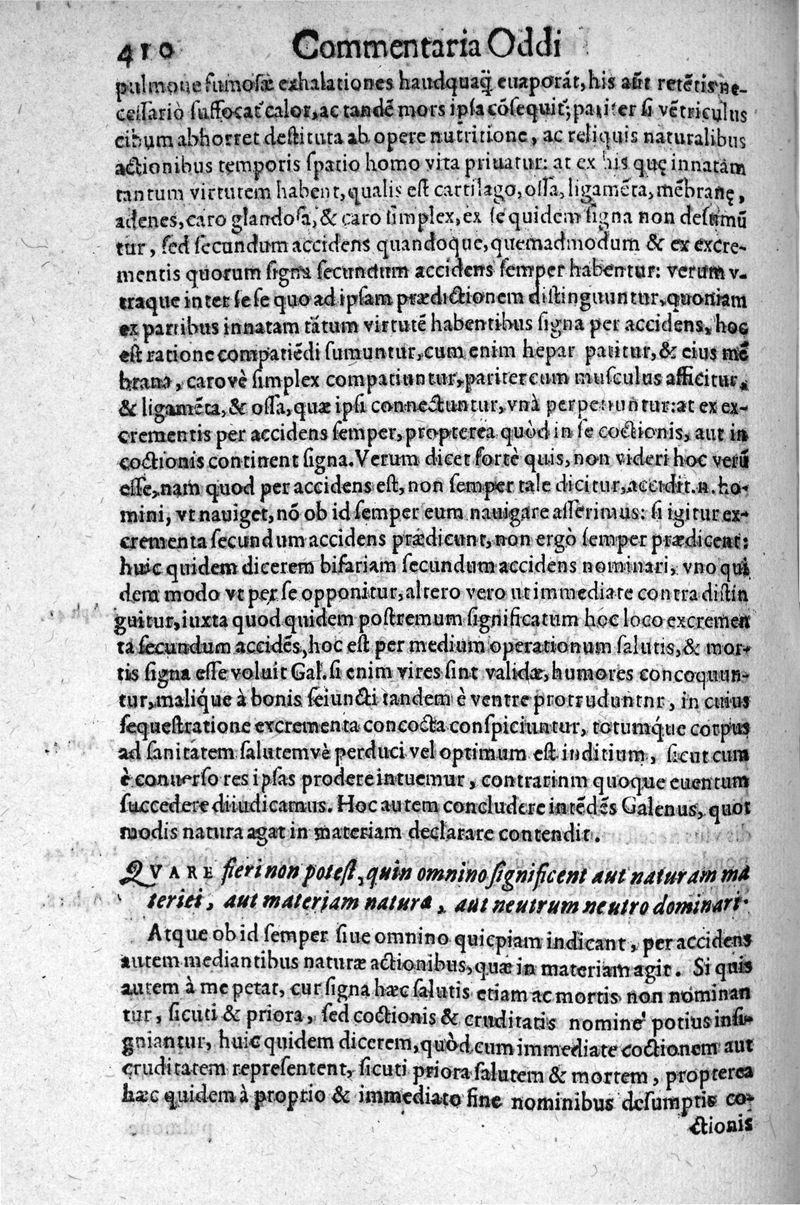 410 Commentaria Oddi
pulmone fumosæ exhalationes haudquaq̃ euaporãt, his aũt retẽtis ne-
cessariò suffocat̃ calor, ac tandẽ mors ipsa cõsequit̃; pariter si vẽtriculus
cibum abhorret destituta ab opere nutritione, ac reliquis naturalibus
actionibus temporis spatio homo vita priuatur: at ex his quę innatam
tantum virtutem habent, qualis est cartilago, ossa, ligamẽta, mẽbranę,
adenes, caro glandosa, & caro simplex, ex se quidem signa non desumũ
tur, sed secundum accidens quandoque, quemadmodum & ex excre-
mentis quorum signa secundum accidens semper habentur: verum v-
traque inter se se quo ad ipsam prædictionem distinguuntur, quoniam
ex partibus innatam tãtum virtutẽ habentibus signa per accidens, hoc
est ratione compatiẽdi sumuntur, cum enim hepar patitur, & eius mẽ
brana, carovè simplex compatiuntur, pariter cum musculus afficitur,
& ligamẽta, & ossa, quæ ipsi connectuntur, vnà perpetiuntur: at ex ex-
crementis per accidens semper, propterea quòd in se coctionis, aut in
coctionis continent signa. Verum dicet fortè quis, non videri hoc verũ
esse, nam quod per accidens est, non semper tale dicitur, accidit .n. ho-
mini, vt nauiget, nõ ob id semper eum nauigare asserimus: si igitur ex-
crementa secundum accidens prædicunt, non ergò semper prædicent:
huic quidem dicerem bifariam secundum accidens nominari, vno qui
dem modo vt per se opponitur, altero vero ut immediate contra distin
guitur, iuxta quod quidem postremum significatum hoc loco excremen
ta secundum accidẽs, hoc est per medium operationum salutis, & mor-
tis signa esse voluit Gal. si enim vires sint validæ, humores concoquun-
tur, malique à bonis seiuncti tandem è ventre protruduntnr, in cuius
sequestratione excrementa concocta conspiciuntur, totumque corpus
ad sanitatem salutemvè perduci vel optimum est inditium, sicut cum
è conuerso res ipsas prodere intuemur, contrarinm quoque euentum
succedere diiudicamus. Hoc autem concludere intẽdẽs Galenus, quot
modis natura agat in materiam declarare contendit.
QVARE fieri non potest, quin omnino significent aut naturam ma
teriei, aut materiam natura, aut neutrum neutro dominari.
Atque ob id semper siue omnino quicpiam indicant, per accidens
autem mediantibus naturæ actionibus, quæ in materiam agit. Si quis
autem à me petat, cur signa hæc salutis etiam ac mortis non nominan
tur, sicuti & priora, sed coctionis & cruditatis nomine potius insi-
gniantur, huic quidem dicerem, quòd cum immediate coctionem aut
cruditatem representent, sicuti priora salutem & mortem, propterea
hæc quidem à proprio & immediato fine nominibus desumptis co-
ctionis